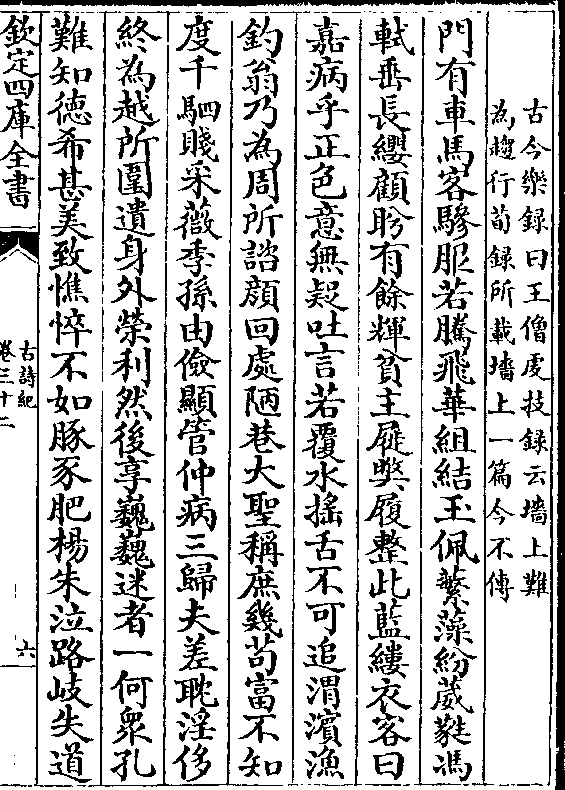 古今樂録曰王僧䖍技録云墻上難
為趨行荀録所載墻上一篇今不傳
門有車馬客驂服若騰飛華組結玉佩蘩藻紛葳蕤馮
軾垂長纓顧盼有餘輝貧主屣獘履整此藍縷衣客曰
嘉病乎正色意無疑吐言若覆水摇舌不可追渭濱漁
釣翁乃為周所諮顔回處陋巷大聖稱庶幾茍富不知
度千駟賤采薇季孫由儉顯管仲病三歸夫差耽淫侈
終為越所圍遺身外榮利然後享巍巍迷者一何衆孔
難知徳希甚美致憔悴不如豚豕肥楊朱泣路岐失道
欽定四庫全書
古詩紀
卷三十二
六